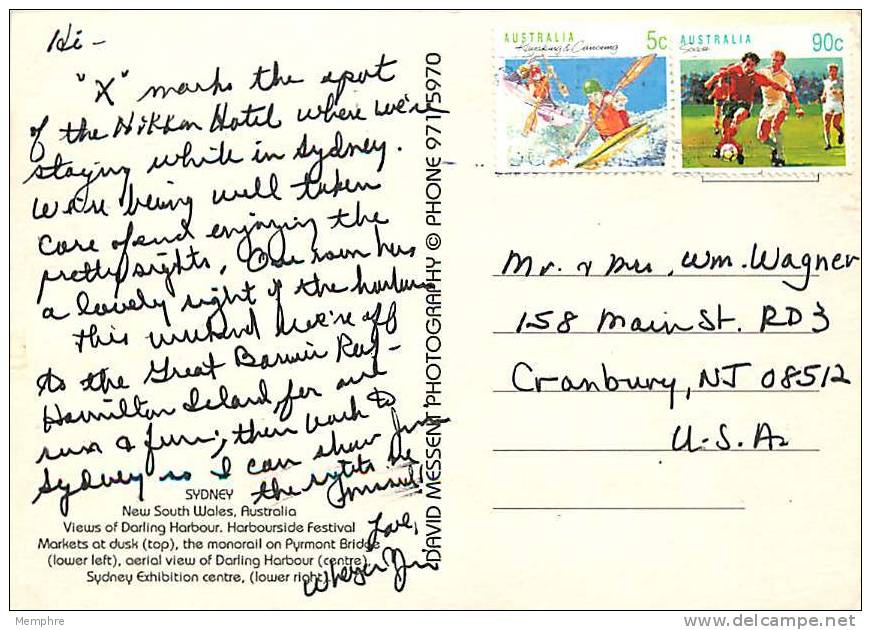 Hi -
"X" marks the spot
of the Nikkon Hotel where we're
staying while in Sydney.
We're being well taken
care of and enjoying the
pretty sights. Our room has
a lovely sight of the harbour
This weekend we're off
to the Great Barrier Reef -
Hamilton Island, for
sun & fun; then back to
Sydney so I can show Jim
the sights he
Love,
SYDNEY
New South Wales, Australia
Views of Darling Harbour. Harbourside Festival
Markets at dusk (top), the monorail on Pyrmont Bridge
(lower left), aerial view of Darling Harbour (centre)
Sydney Exhibition centre, (lower right)
DAVID MESSENT PHOTOGRAPHY © PHONE 971 5970
AUSTRALIA 5c
Kayaking & Canoeing
AUSTRALIA 90c
Soccer
Mr. & Mrs. Wm. Wagner
158 Main St. RD3
Cranbury, NJ 08512
U.S.A.
Memphre
delcampe.net